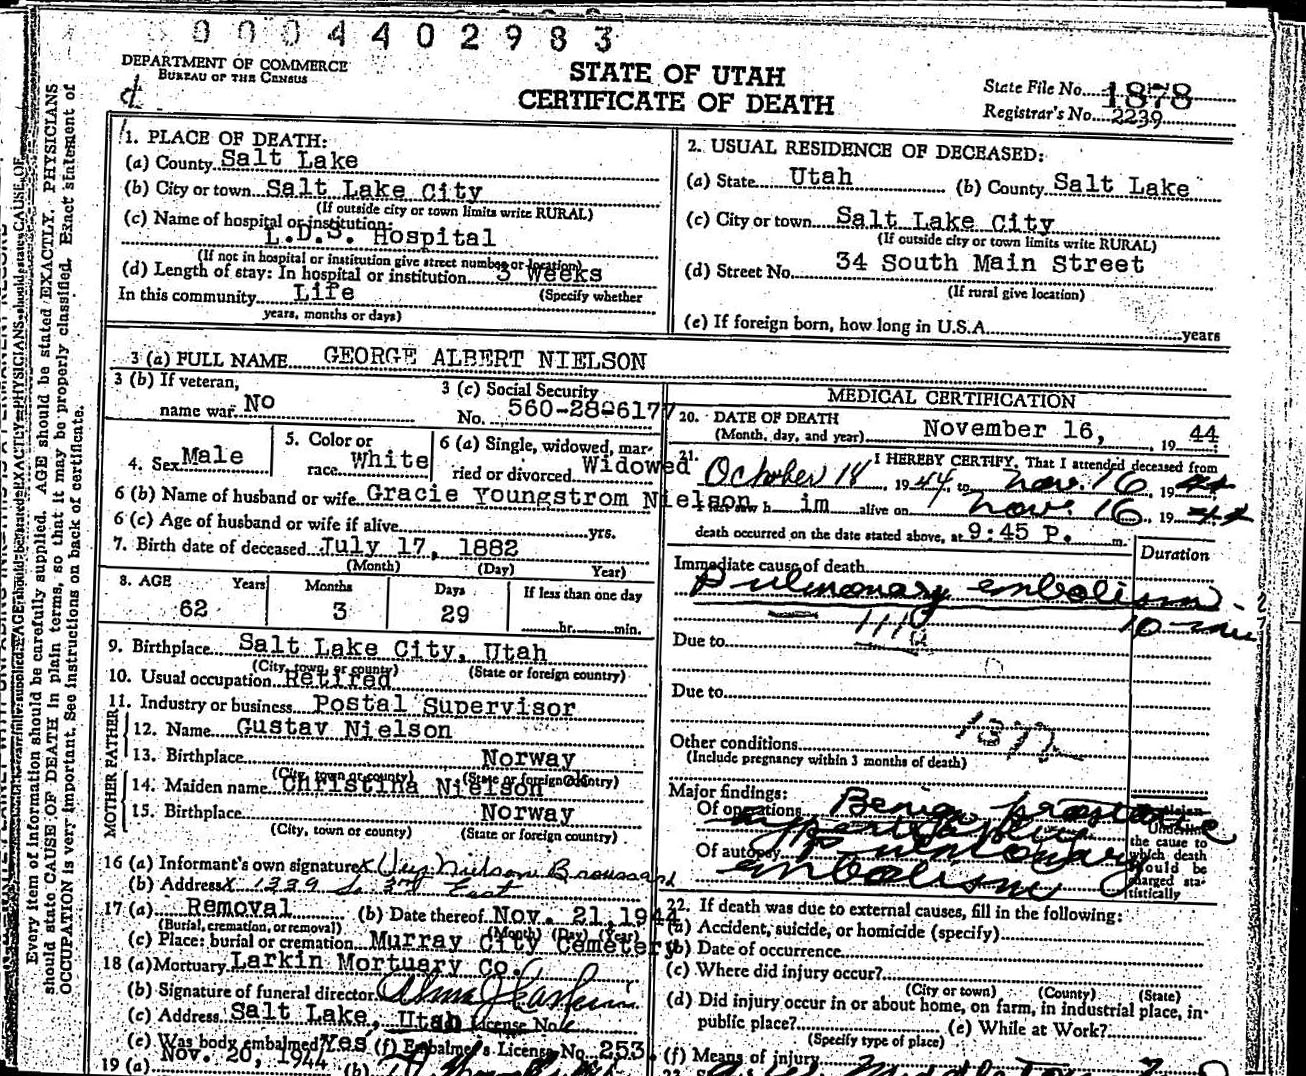 0004402983
DEPARTMENT OF COMMERCE
BUREAU OF THE CENSUS
STATE OF UTAH
CERTIFICATE OF DEATH
State File No. 1878
Registrar's No. 2239
1. PLACE OF DEATH:
(a) County Salt Lake
(b) City or town Salt Lake City
(If outside city or town limits write RURAL)
(c) Name of hospital or institution:
L.D.S. Hospital
(If not in hospital or institution give street number or location)
(d) Length of stay: In hospital or institution 3 Weeks
In this community Life (Specify whether
years, months or days)
2. USUAL RESIDENCE OF DECEASED:
(a) State Utah (b) County Salt Lake
(c) City or town Salt Lake City
(If outside city or town limits write RURAL)
(d) Street No. 34 South Main Street
(If rural give location)
(e) If foreign born, how long in U.S.A. years
3 (a) FULL NAME GEORGE ALBERT NIELSON
3 (b) If veteran,
name war. No
3 (c) Social Security
No. 560-28-6177
4. Sex Male
5. Color or
race White
6 (a) Single, widowed, mar-
ried or divorced Widowed
6 (b) Name of husband or wife Gracie Youngstrom Nielson
6 (c) Age of husband or wife if alive yrs.
7. Birth date of deceased July 17, 1882
(Month) (Day) Year)
8. AGE Years Months Days If less than one day
62 3 29 hr. min.
9. Birthplace Salt Lake City, Utah
(City, town, or county) (State or foreign country)
10. Usual occupation Retired
11. Industry or business Postal Supervisor
FATHER
12. Name Gustav Nielson
13. Birthplace Norway
(City, town or county) (State or foreign country)
MOTHER
14. Maiden name Christina Nielson
15. Birthplace Norway
(City, town or county) (State or foreign country)
16 (a) Informant's own signature x Nielson Broussard
(b) Address x 1339 So. 3rd East
17 (a) Removal (b) Date thereof Nov. 21, 1944
(Burial, cremation, or removal) (Month) (Day) (Year)
(c) Place: burial or cremation Murray City Cemetery
18 (a) Mortuary Larkin Mortuary Co.
(b) Signature of funeral director
(c) Address Salt Lake, Utah License No.
(e) Was body embalmed? Yes (f) Embalmer's License No. 253
19 (a) Nov. 20, 1944 (b)
MEDICAL CERTIFICATION
20. DATE OF DEATH
(Month, day, and year) November 16, 1944
21. I HEREBY CERTIFY, That I attended deceased from
October 18, 1944, to Nov. 16, 1944
im alive on Nov. 16, 1944
death occurred on the date stated above, at 9:45 P. m.
Immediate cause of death Duration
Pulmonary embolism
10
Due to
Due to
Other conditions
(Include pregnancy within 3 months of death)
Major findings:
Of operations Benign prostatic
hypertrophy
Of autopsy Pulmonary
embolism
Underline
the cause to
which death
should be
charged sta-
tistically
22. If death was due to external causes, fill in the following:
(a) Accident, suicide, or homicide (specify)
(b) Date of occurrence
(c) Where did injury occur?
(City or town) (County) (State)
(d) Did injury occur in or about home, on farm, in industrial place, in-
public place? (e) While at Work?
(Specify type of place)
(f) Means of injury
Every item of information should be carefully supplied. AGE should be stated EXACTLY. PHYSICIANS
should state CAUSE OF DEATH in plain terms, so that it may be properly classified. Exact statement of
OCCUPATION is very important. See instructions on back of certificate.